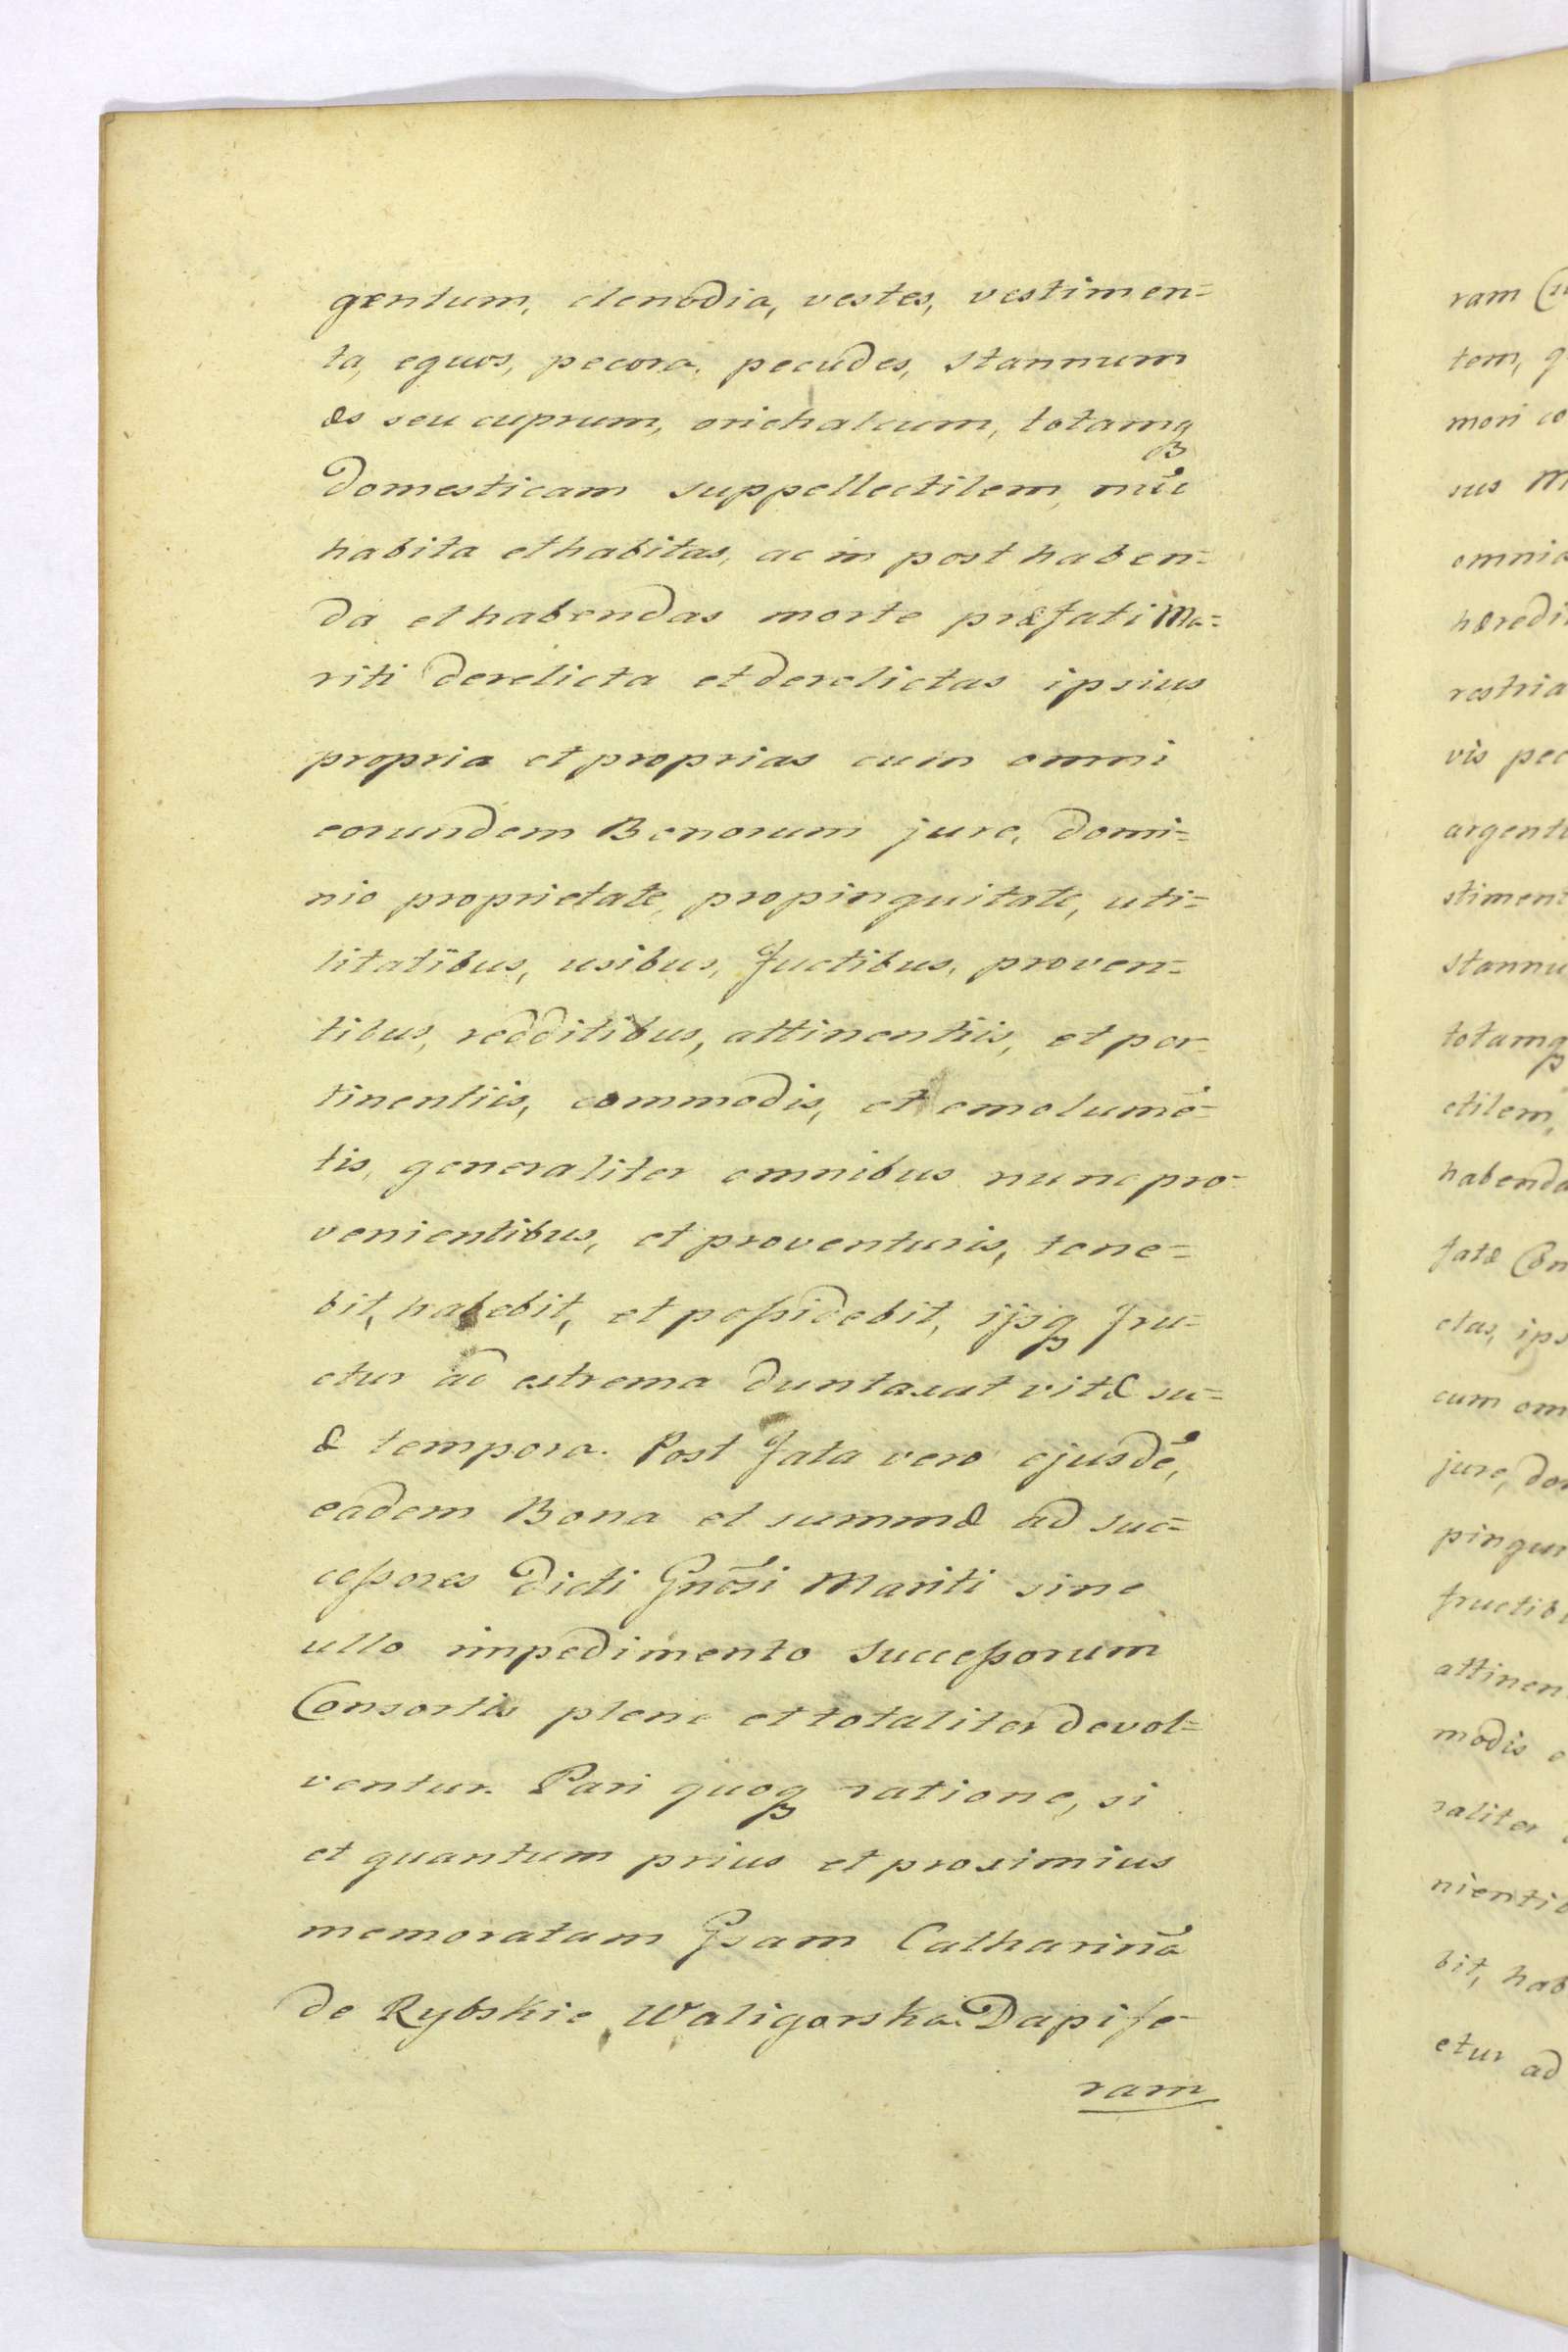 gentum, clenodia, vestes, vestimen=
ta, equos, pecora, pecudes, stannum
æs seu cuprum, orichalcum, totamq₃
Domesticam suppellectilem, nũc
habita et habitas, ac in post haben=
da et habendas morte præfati Ma=
riti derelicta et derelictas ipsius
propria et proprias cum omni
eorundem Bonorum jure, domi=
nio proprietate, propinquitate, uti=
litatibus, usibus, fuctibus, proven=
tibus, redditibus, attinentiis, et per-
tinentiis, commodis, et emolumẽ=
tis, generaliter omnibus nunc pro-
venientibus, et proventuris, tene=
bit, habebit, et poßidebit, ijsq₃ fru=
etur ad extrema duntaxat vitæ su=
æ tempora. Post fata vero ejusdẽ,
eadem Bona et summæ ad suc=
ceßores Dicti Gnõsi Mariti sine
ullo impedimento succeßorum
Consortis plene et totaliter devol=
ventur. Pari quoq₃ ratione, si
et quantum prius et proximius
memoratam Gsam Catharinã
de Rybskie Waligorska Dapife-
ram
ram
tem, q
mori co
sus M
omnia
hæredi
restria
vis pec
argent
stiment
stannu
totamq₃
ctilem,
habenda
fatæ Con
ctas, ips
cum om
jure, do
pinqui
fructib
attinen
modis e
raliter
nienti
bit, hab
etur ad